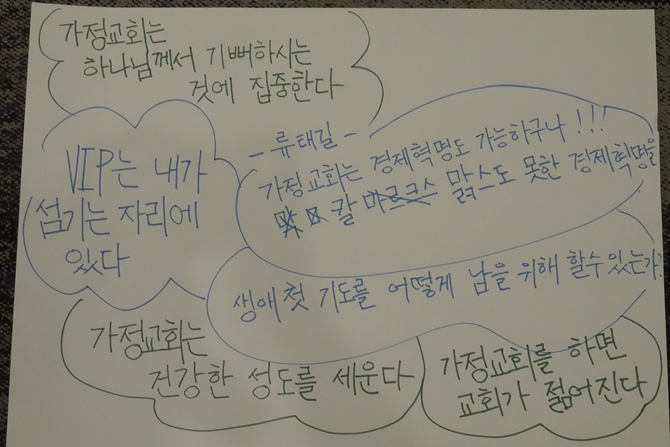 가정교회는
하나님께서 기뻐하시는
것에 집중한다
VIP는 내가
섬기는 자리에
있다
- 류태길 -
가정교회는 경제혁명도 가능하구나!!!
칼 마르크스 맑스도 못한 경제혁명을
생애 첫 기도를 어떻게 남을 위해 할수 있는가?
가정교회는
건강한 성도를 세운다
가정교회를 하면
교회가 젊어진다